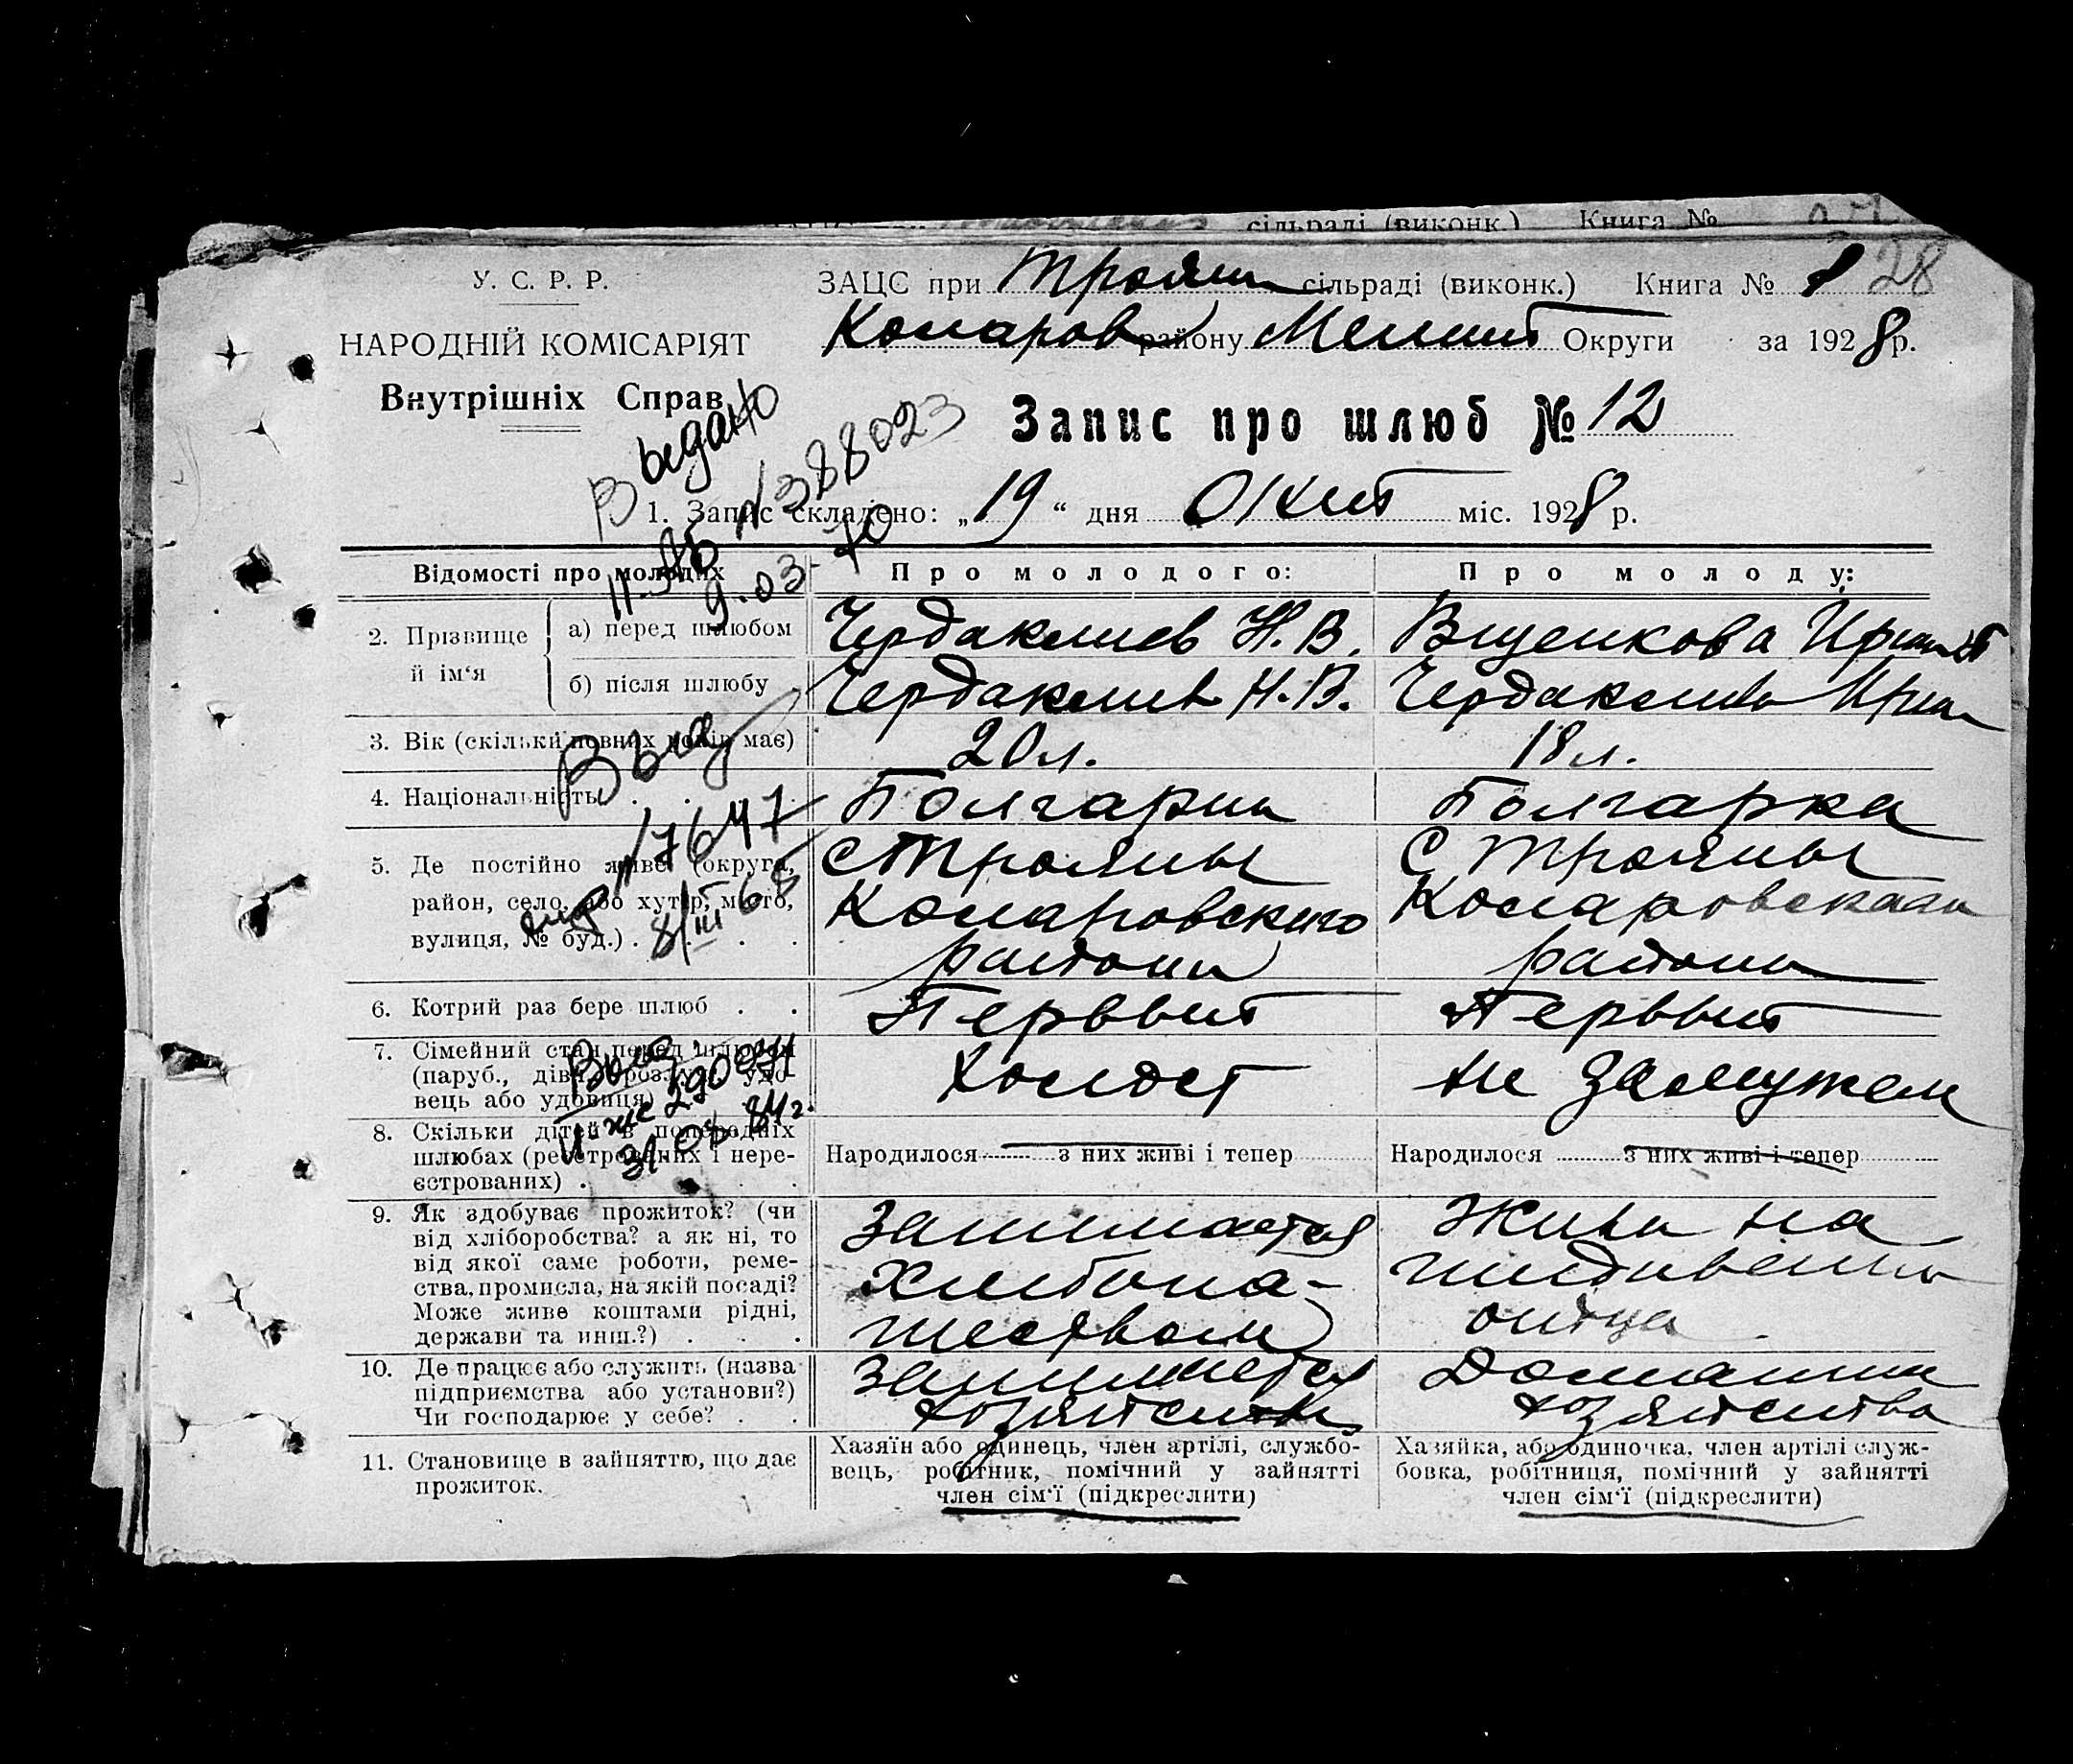 сільраді (виконк.) Книга №
У. С. Р. Р.
ЗАЦС при Троян сільраді (виконк.) Книга № 28
НАРОДНІЙ КОМІСАРІЯТ
Комаров району Мелит Округи за 1928 р.
Внутрішніх Справ
Запис про шлюб № 12
Выдано
№ 388023
9.03-70
1. Запис складено: „19“ дня Октя міс. 1928 р.
Відомості про молодих
Про молодого:
Про молоду:
2. Прізвище й ім‘я
а) перед шлюбом
Чердаклиев Н. В.
Вщенкова
б) після шлюбу
Чердаклиев Н. В.
3. Вік (скільки повних років має)
20 л.
18 л.
4. Національність . . .
Болгарин
Болгарка
5. Де постійно живе (округа,
район, село, або хутір, місто,
вулиця, № буд.) . . . .
с Трояны
Комаровского
района
С Трояны
Комаровскаго
района
№ 7647
8/III 68
6. Котрий раз бере шлюб . .
Первый
Первый
7. Сімейний стан перед шлюбом
(паруб., дівч., розлуч., удо-
вець або удовиця) .
Холост
не замужем
Выд
290
84 г.
8. Скільки дітей в попередніх
шлюбах (реєстрованих і нере-
єстрованих) . . . .
Народилося з них живі і тепер
Народилося з них живі і тепер
9. Як здобуває прожиток? (чи
від хліборобства? а як ні, то
від якої саме роботи, реме-
ства, промисла, на якій посаді?
Може живе коштами рідні,
держави та инш.?) . . .
Занимается
хлебопа-
шеством
на
иждивении
отца
10. Де працює або служить (назва
підприємства або установи?)
Чи господарює у себе? . .
Занимается
Домашни
11. Становище в зайняттю, що дає
прожиток.
Хазяїн або одинець, член артілі, службо-
вець, робітник, помічний у зайнятті
член сім‘ї (підкреслити)
Хазяйка, або одиночка, член артілі служ-
бовка, робітниця, помічний у зайнятті
член сім‘ї (підкреслити)